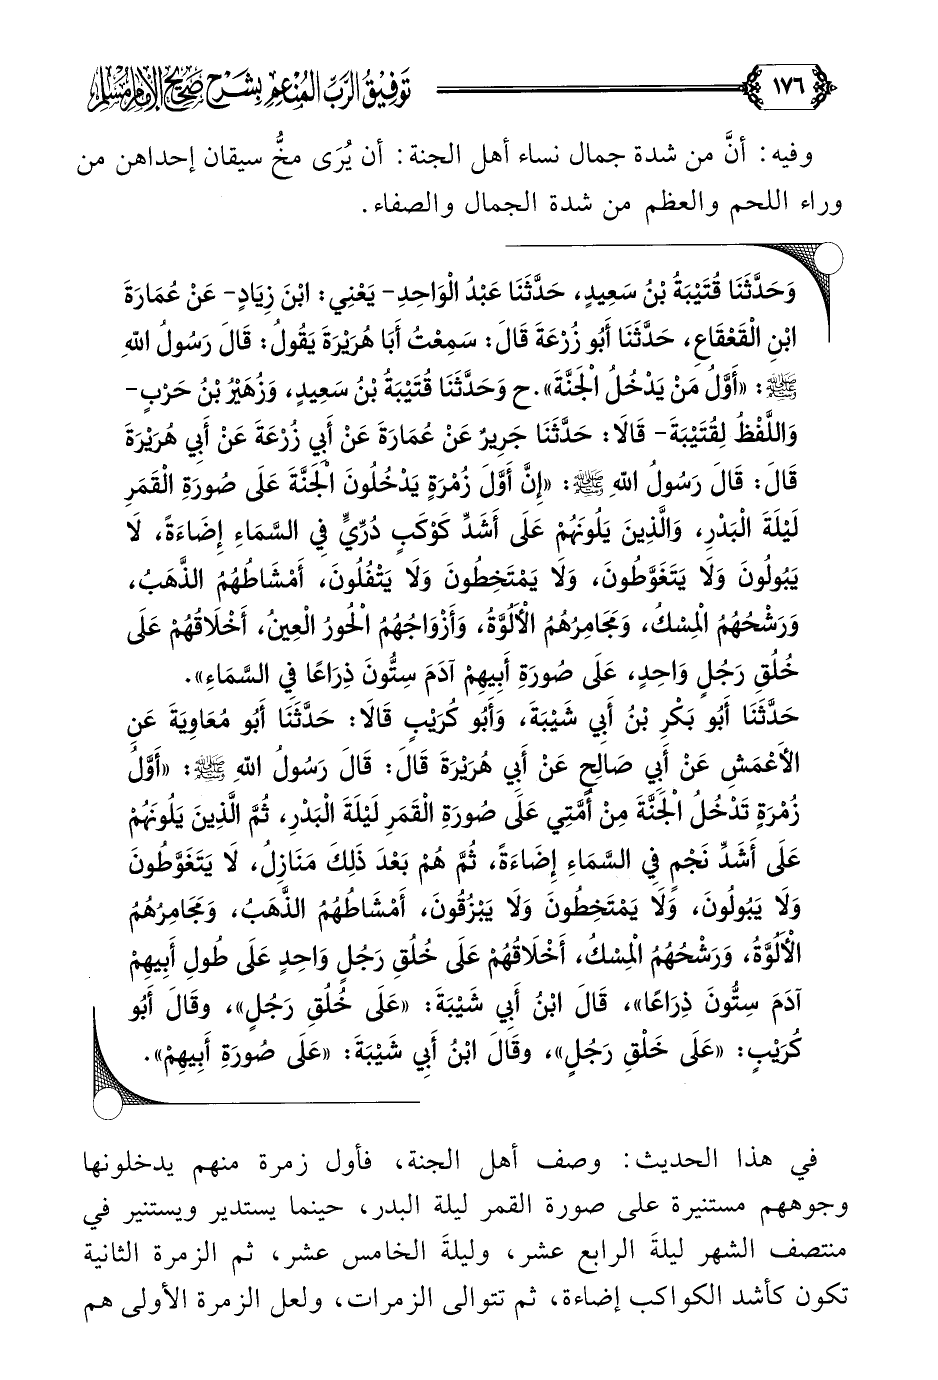 ١٧٦ توفيق الرب المنعم بشرح صحيح الإمام مسلم
وفيه: أنَّ من شدة جمال نساء أهل الجنة: أن يُرَى مخُّ سيقان إحداهن من
وراء اللحم والعظم من شدة الجمال والصفاء.
وَحَدَّثَنَا قُتَيْبَةُ بْنُ سَعِيدٍ، حَدَّثَنَا عَبْدُ الْوَاحِدِ- يَعْنِي: ابْنَ زِيَادٍ- عَنْ عُمَارَةَ
ابْنِ الْقَعْقَاعِ، حَدَّثَنَا أَبُو زُرْعَةَ قَالَ: سَمِعْتُ أَبَا هُرَيْرَةَ يَقُولُ: قَالَ رَسُولُ اللهِ
ﷺ: «أَوَّلُ مَنْ يَدْخُلُ الْجَنَّةَ».ح وَحَدَّثَنَا قُتَيْبَةُ بْنُ سَعِيدٍ، وَزُهَيْرُ بْنُ حَرْبٍ-
وَاللَّفْظُ لِقُتَيْبَةَ- قَالَا: حَدَّثَنَا جَرِيرٌ عَنْ عُمَارَةَ عَنْ أَبِي زُرْعَةَ عَنْ أَبِي هُرَيْرَةَ
قَالَ: قَالَ رَسُولُ اللهِ ﷺ: «إِنَّ أَوَّلَ زُمْرَةٍ يَدْخُلُونَ الْجَنَّةَ عَلَى صُورَةِ الْقَمَرِ
لَيْلَةَ الْبَدْرِ، وَالَّذِينَ يَلُونَهُمْ عَلَى أَشَدِّ كَوْكَبٍ دُرِّيٍّ فِي السَّمَاءِ إِضَاءَةً، لَا
يَبُولُونَ وَلَا يَتَغَوَّطُونَ، وَلَا يَمْتَخِطُونَ وَلَا يَتْفُلُونَ، أَمْشَاطُهُمُ الذَّهَبُ،
وَرَشْحُهُمُ الْمِسْكُ، وَمَجَامِرُهُمُ الْأَلُوَّةُ، وَأَزْوَاجُهُمُ الْحُورُ الْعِينُ، أَخْلَاقُهُمْ عَلَى
خُلُقِ رَجُلٍ وَاحِدٍ، عَلَى صُورَةِ أَبِيهِمْ آدَمَ سِتُّونَ ذِرَاعًا فِي السَّمَاءِ».
حَدَّثَنَا أَبُو بَكْرِ بْنُ أَبِي شَيْبَةَ، وَأَبُو كُرَيْبٍ قَالَا: حَدَّثَنَا أَبُو مُعَاوِيَةَ عَنِ
الأَعْمَشِ عَنْ أَبِي صَالِحٍ عَنْ أَبِي هُرَيْرَةَ قَالَ: قَالَ رَسُولُ اللهِ ﷺ: «أَوَّلُ
زُمْرَةٍ تَدْخُلُ الْجَنَّةَ مِنْ أُمَّتِي عَلَى صُورَةِ الْقَمَرِ لَيْلَةَ الْبَدْرِ، ثُمَّ الَّذِينَ يَلُونَهُمْ
عَلَى أَشَدِّ نَجْمٍ فِي السَّمَاءِ إِضَاءَةً، ثُمَّ هُمْ بَعْدَ ذَلِكَ مَنَازِلُ، لَا يَتَغَوَّطُونَ
وَلَا يَبُولُونَ، وَلَا يَمْتَخِطُونَ وَلَا يَبْزُقُونَ، أَمْشَاطُهُمُ الذَّهَبُ، وَمَجَامِرُهُمُ
الْأَلُوَّةُ، وَرَشْحُهُمُ الْمِسْكُ، أَخْلَاقُهُمْ عَلَى خُلُقِ رَجُلٍ وَاحِدٍ عَلَى طُولِ أَبِيهِمْ
آدَمَ سِتُّونَ ذِرَاعًا»، قَالَ ابْنُ أَبِي شَيْبَةَ: «عَلَى خُلُقِ رَجُلٍ»، وقَالَ أَبُو
كُرَيْبٍ: «عَلَى خَلْقِ رَجُلٍ»، وقَالَ ابْنُ أَبِي شَيْبَةَ: «عَلَى صُورَةِ أَبِيهِمْ».
في هذا الحديث: وصف أهل الجنة، فأول زمرة منهم يدخلونها
وجوههم مستنيرة على صورة القمر ليلة البدر، حينما يستدير ويستنير في
منتصف الشهر ليلةَ الرابع عشر، وليلةَ الخامس عشر، ثم الزمرة الثانية
تكون كأشد الكواكب إضاءة، ثم تتوالى الزمرات، ولعل الزمرة الأولى هم